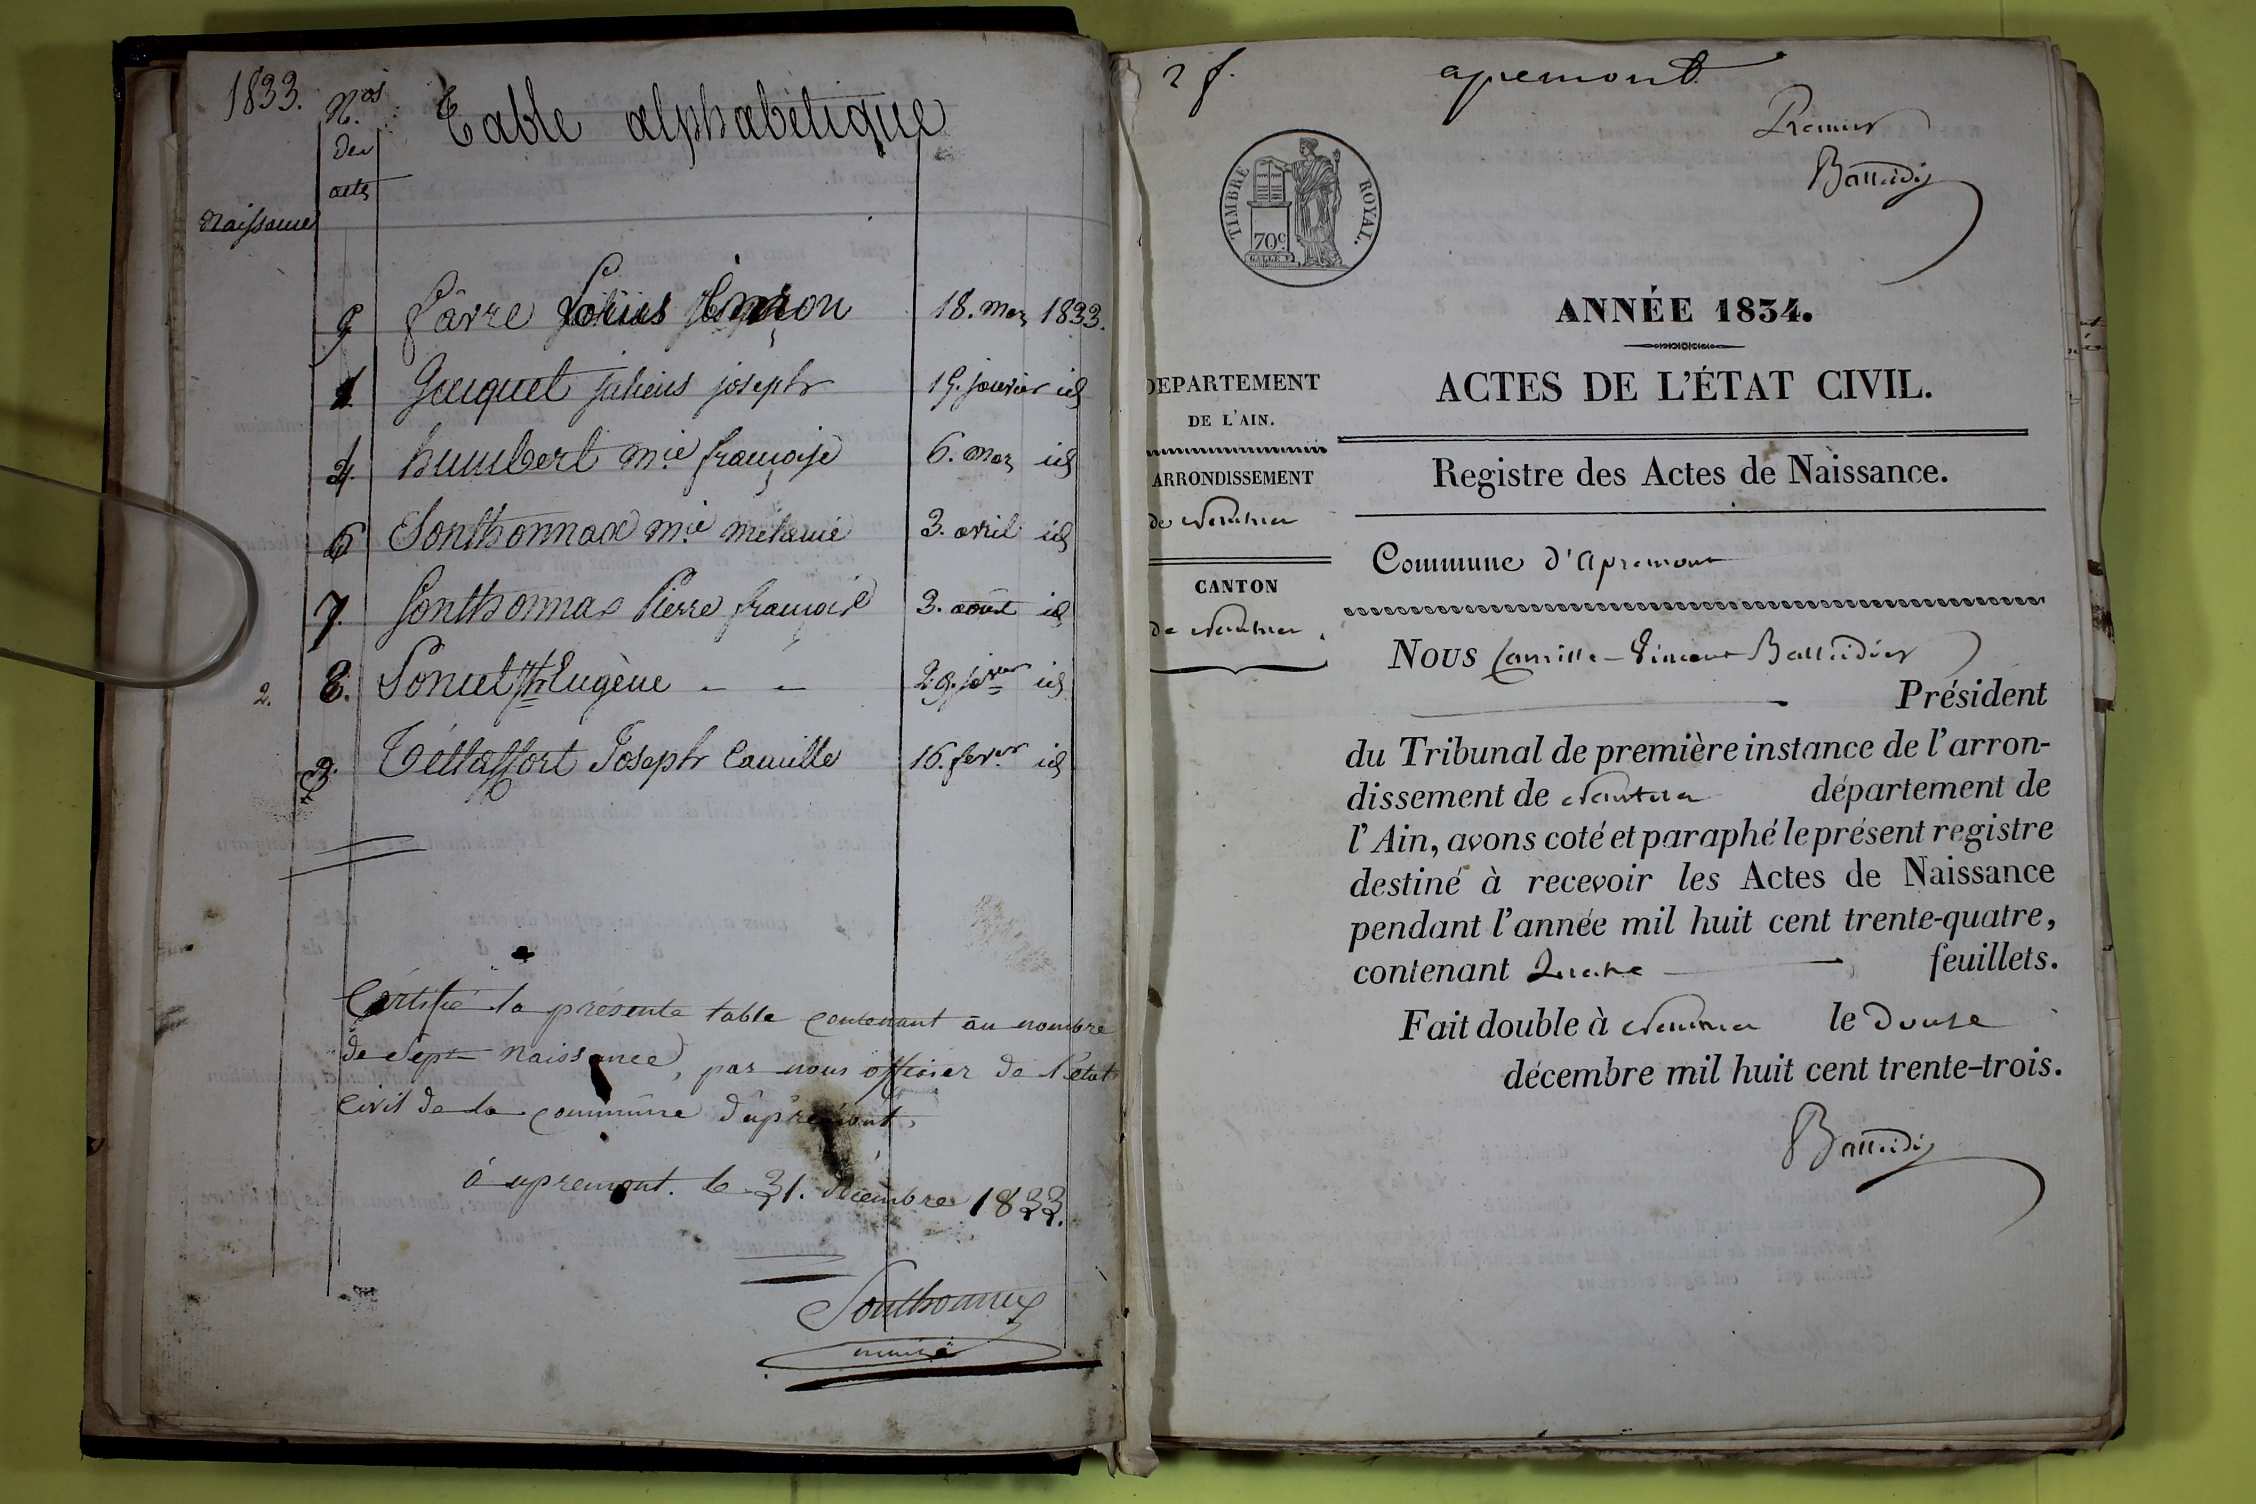 1833.
Nos
des
actes
Table alphabétique
Naissance
favre
18. mars 1833.
1. Gouquet juliens joseph 19. janvier id
4. humbert mie françoise 6. mars id
6 Sonthonnax mie melanie 3. avril id
7. Sonthonnax Pierre françois 3. août id
2. 8. Poncet jh Eugène - - 29. id
3. Tettaffort Joseph Camille 16. fevrer id
Certifié la présente table contenant au nombre
de Sept naissance, par nous officier de l'état
civil de la commune d'apremont,
á apremont. le 31. décembre 1833.
Sonthonnax
maire
2 f. apremont
Premier
Battidier
TIMBRE ROYAL.
70c
ANNÉE 1834.
ACTES DE L'ÉTAT CIVIL.
DEPARTEMENT
DE L'AIN.
ARRONDISSEMENT
de Nantua
CANTON
de Nantua
Registre des Actes de Naissance.
Commune d'Apremont
Nous Camille-Vincent Battidier
Président
du Tribunal de première instance de l'arron-
dissement de Nantua département de
l'Ain, avons coté et paraphé le présent registre
destiné à recevoir les Actes de Naissance
pendant l'année mil huit cent trente-quatre,
contenant Quatre feuillets.
Fait double à Nantua le douze
décembre mil huit cent trente-trois.
Battidier